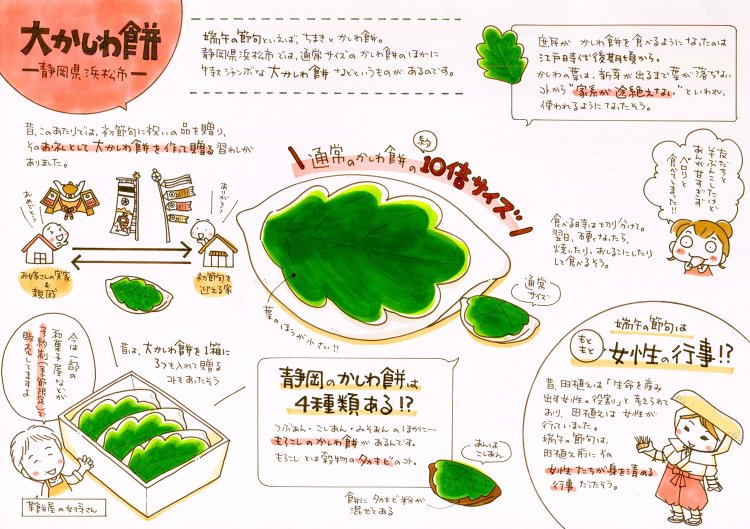 大かしわ餅
静岡県浜松市
端午の節句といえば、ちまきとかしわ餅。
静岡県浜松市では、通常サイズのかしわ餅のほかに
特大ジャンボな大かしわ餅などというものがあるのです。
庶民がかしわ餅を食べるようになったのは
江戸時代後期頃から。
かしわの葉は、新芽が出るまで葉が落ちない
コトから“家系が途絶えない”といわれ、
使われるようになったそう。
昔、このあたりでは、初節句に祝いの品を贈り、
そのお礼として大かしわ餅を作って贈る習わしが
ありました。
おめでとう
ありがとう
お嫁さんの実家
&
親困
初節句を
迎える家
通常のかしわ餅の
約
10倍サイズ
葉のほうが小さい!!
通常
サイズ
友だちと
半ぶんこしたけど
あんが甘すぎず
ペロリと
食べてしまった!!
食べる時は切り分けて。
翌日、硬くなったら、
焼いたり、おしるこにしたり
して食べるそう。
今は一部の
和菓子屋などが
予約制(季節限定)で
販売してますよ
菓餅屋の女将さん
昔は、大かしわ餅を1箱に
3つも入れて贈る
コトもあったそう
静岡のかしわ餅は
4種類ある!?
つぶあん・こしあん・みそあんのほかに…
もろこしのかしわ餅があるんです。
もろこしとは穀物のタカキビのコト。
あんは
こしあん
餅にタカキビ粉が
混ぜてある
端午の節句は
もともと
女性の行事!?
昔、田植えは「生命を産み
出す女性の役割」と考えられて
おり、田植えは女性が
行っていました。
端午の節句は、
田植え前にその
女性たちが身を清める
行事だったそう。